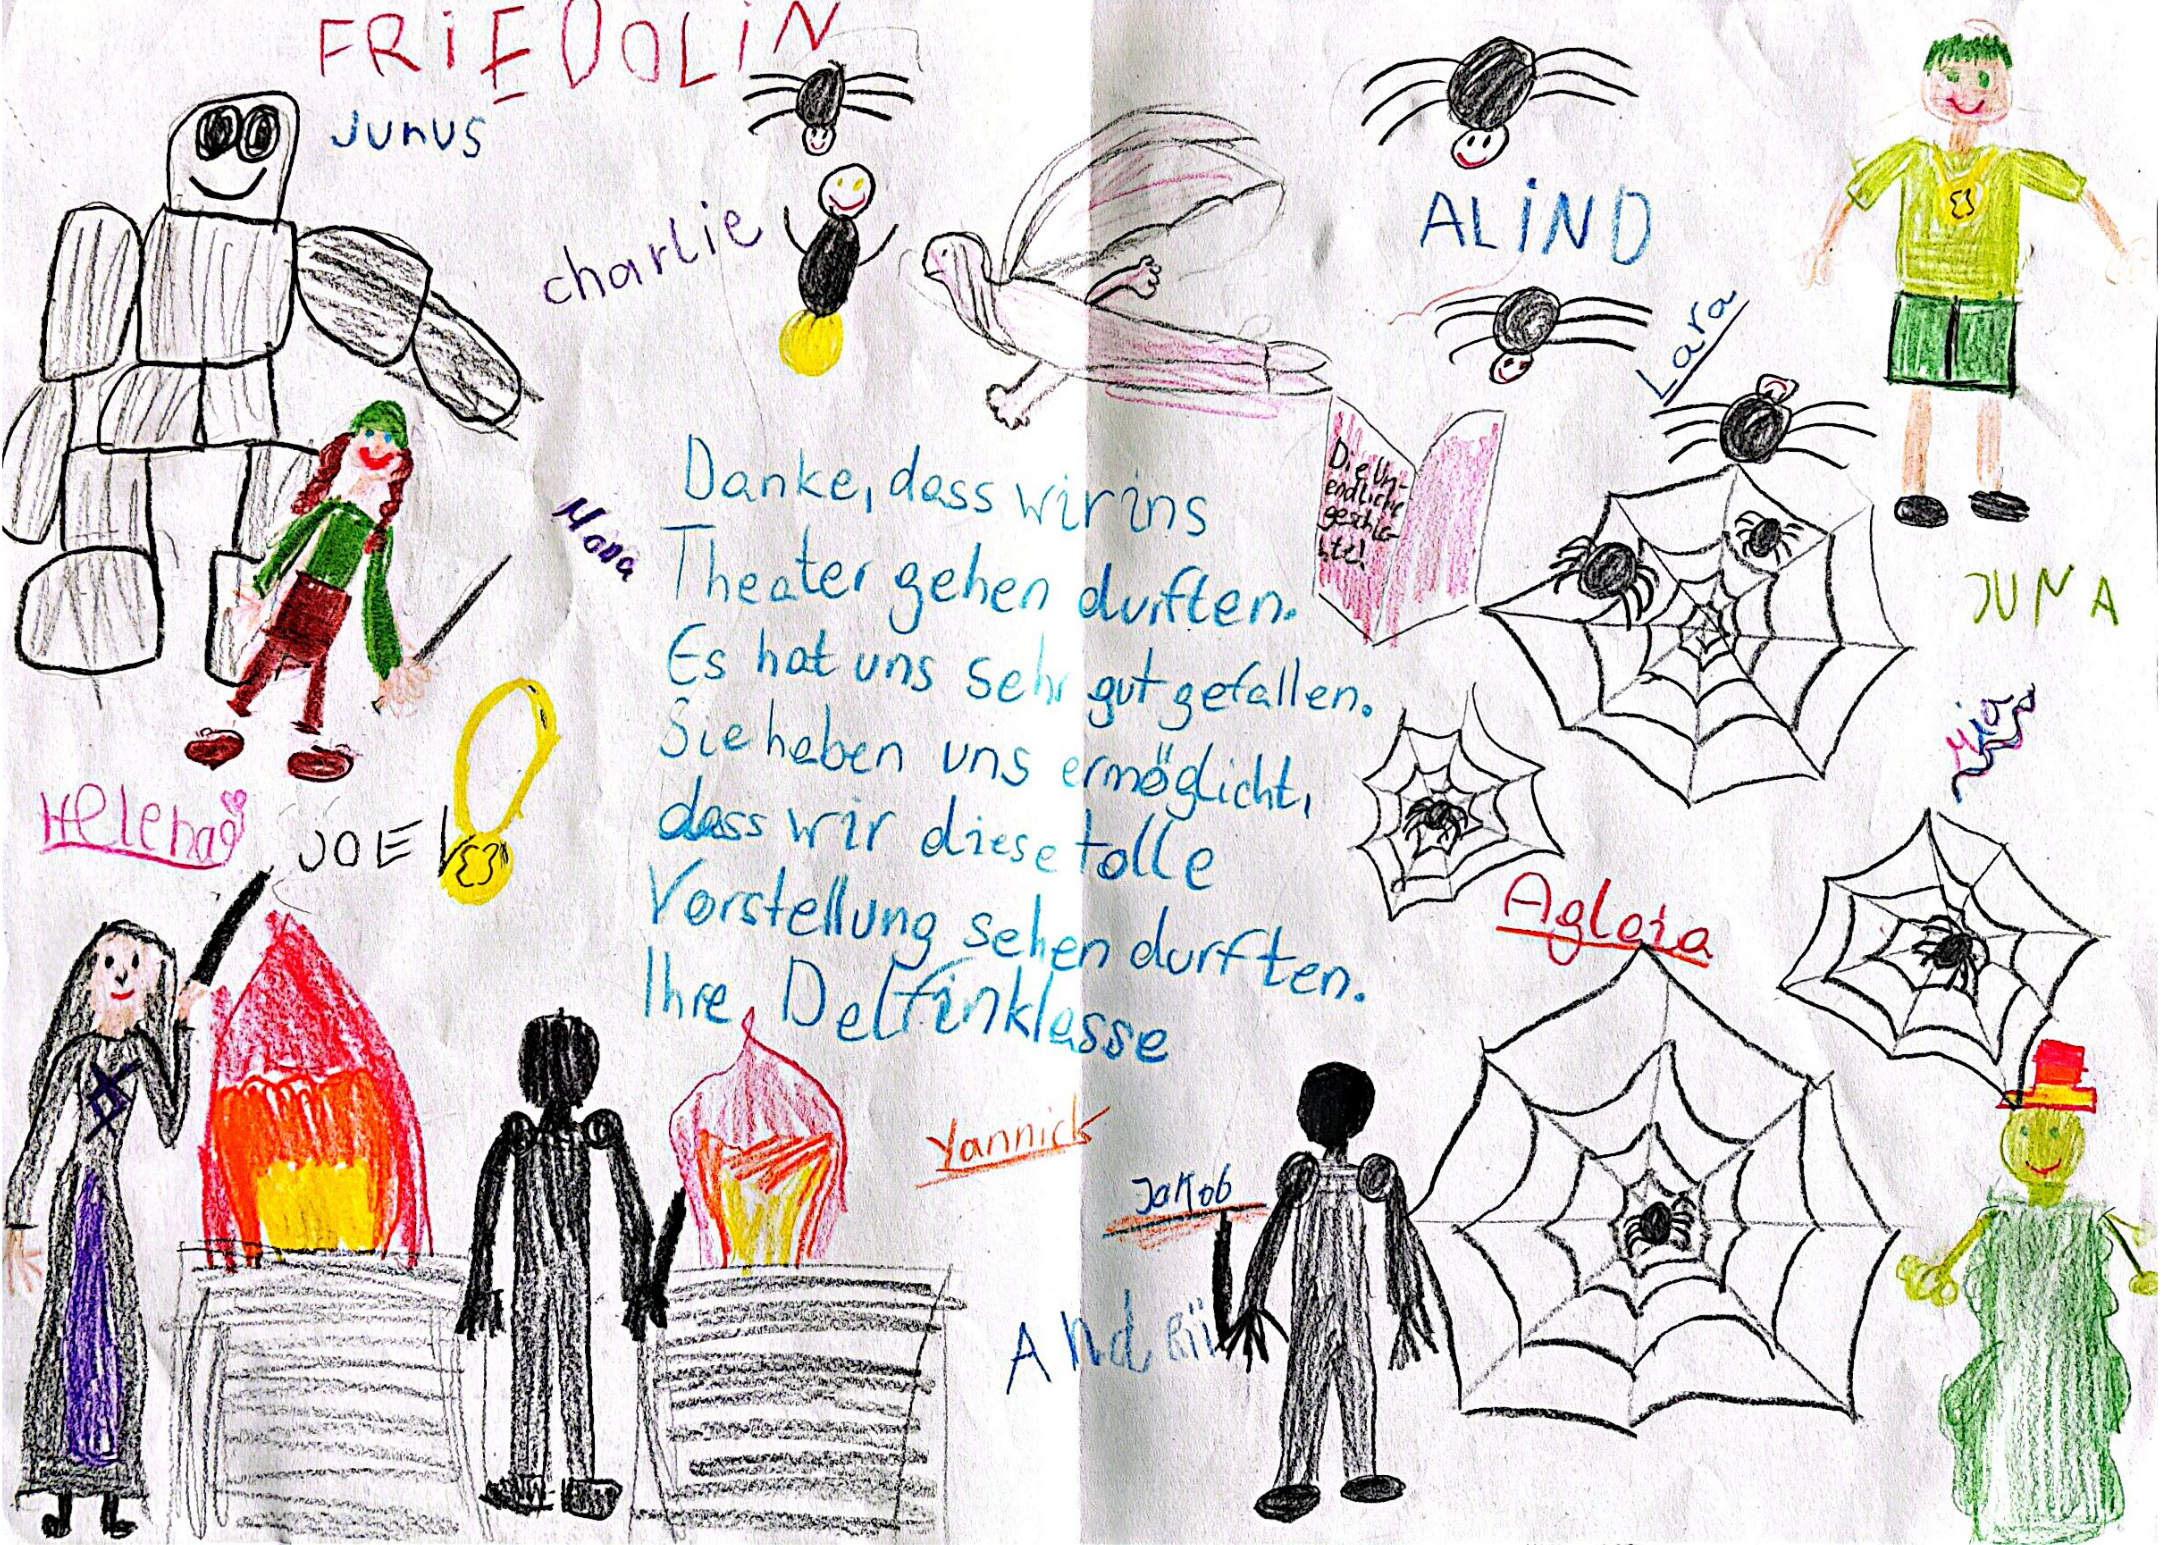 FRiEDOLiN
Junus
charlie
ALiND
Lara
Danke, dass wir ins
Theater gehen durften.
Es hat uns sehr gut gefallen.
Sie haben uns ermöglicht,
dass wir diese tolle
Vorstellung sehen durften.
Ihre Delfinklasse
Die Un-
endliche
geschic-
hte!
JUNA
Mia
Helena
JOEL
Aglaia
Yannick
Jakob
Andrii